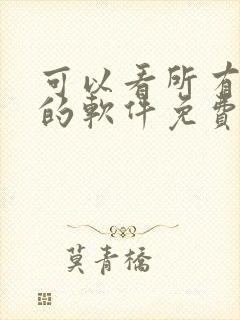 可以看所有
的軟件免費
莫青橋